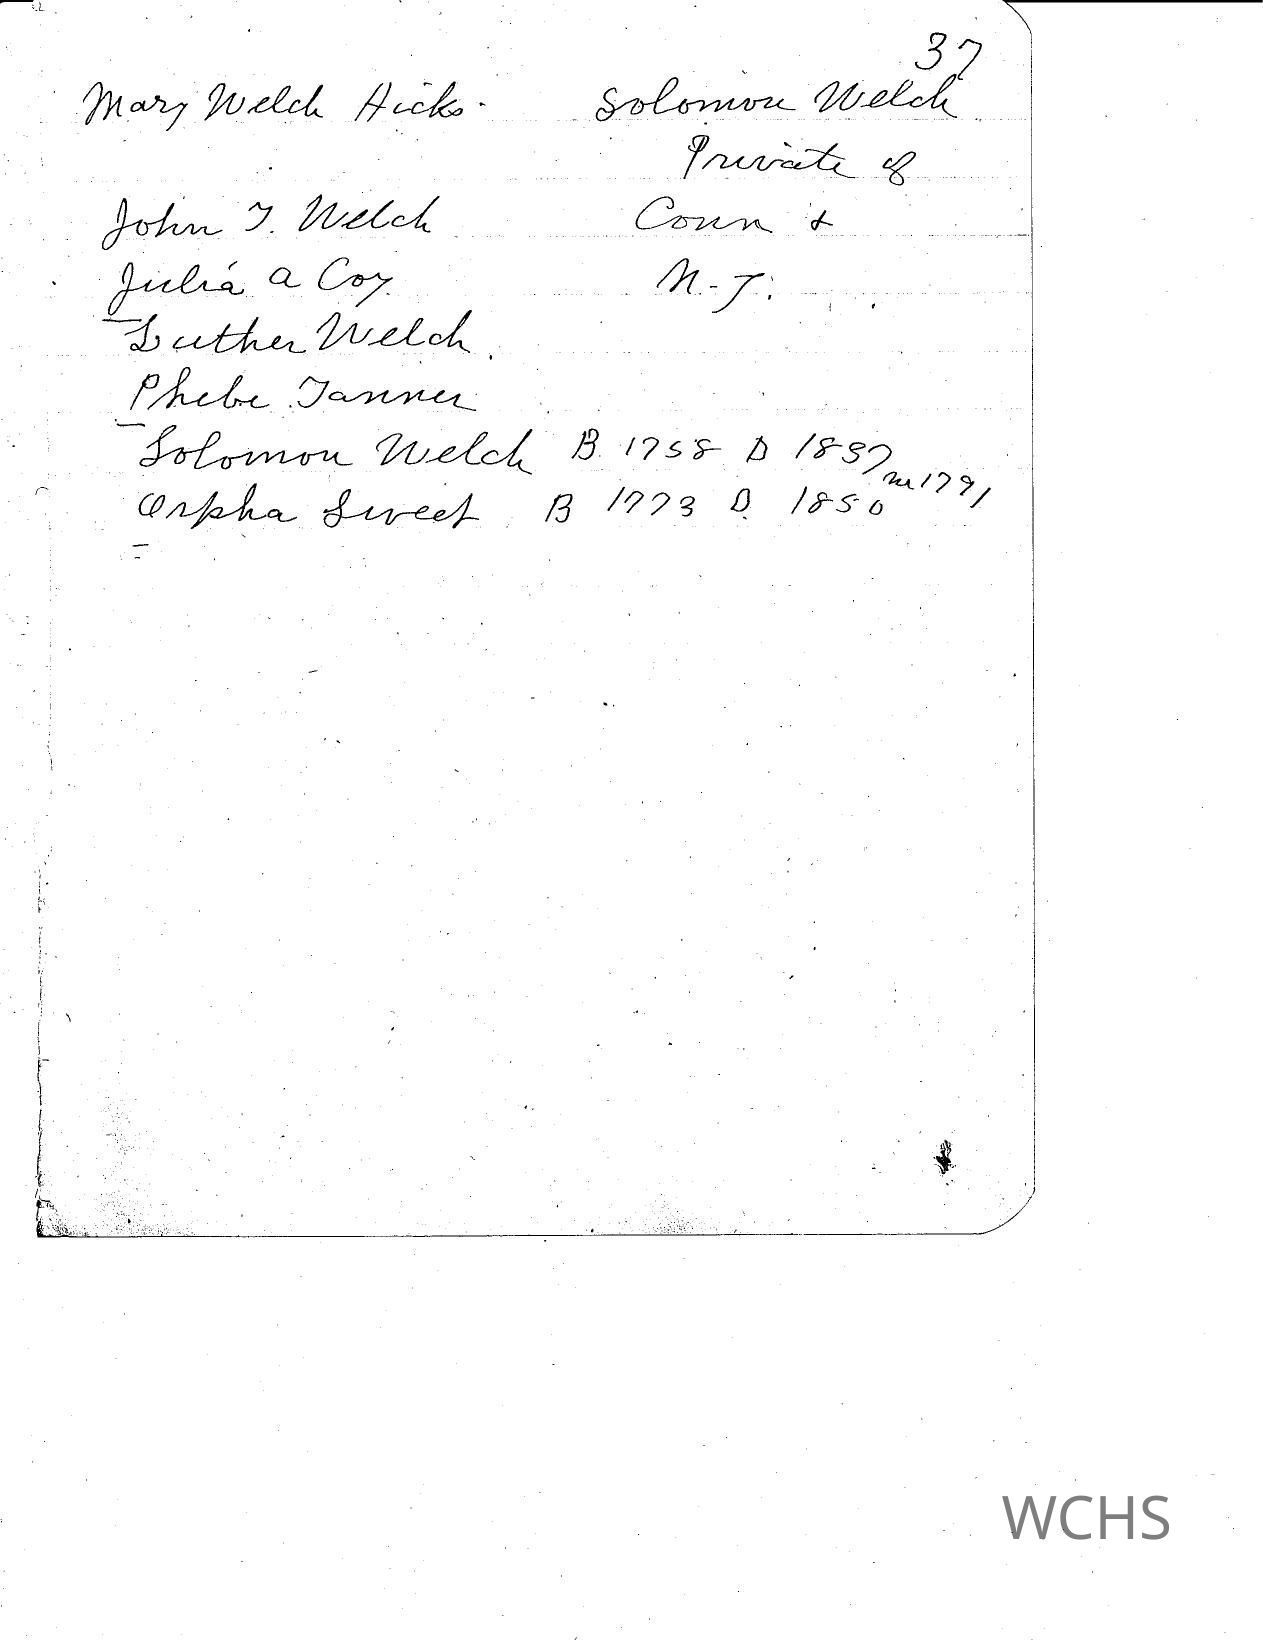 37
Mary Welch Hicks. Solomon Welch
Private of
John T. Welch Conn &
Julia A Coy N.J.
Luther Welch.
Phebe Tanner
Solomon Welch B 1758 D 1837
m 1791
Orpha Sweet B 1773 D 1850
WCHS